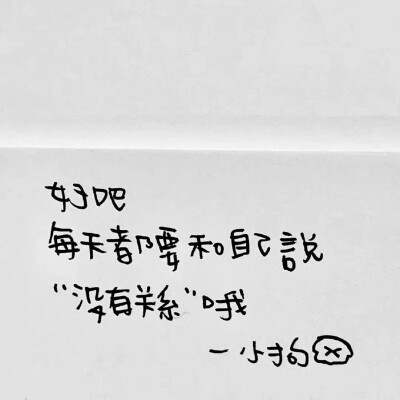 好吧
每天都要和自己説
“没有关系”哦
一小狗